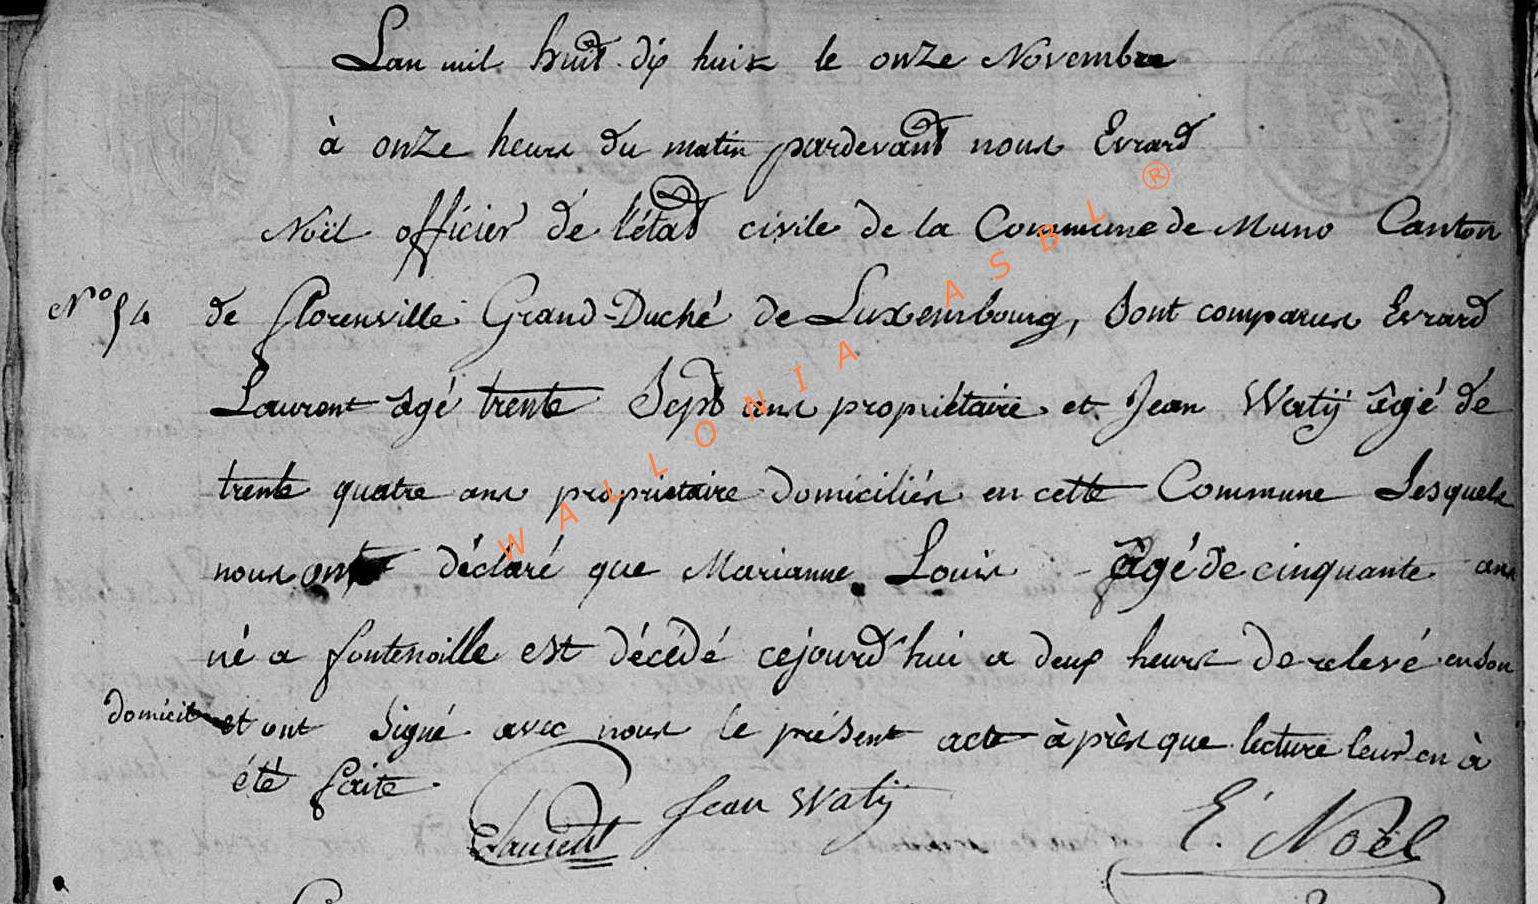 Lan mil huit dix huit le onze Novembre
à onze heurs du matin pardevant nous Evrard
Noël officier de l'état civile de la Commune de Muno Canton
N° 54 de florenville Grand-Duché de Luxembourg, Sont comparus Evrard
Laurent agé trente Sept ans propriétaire et Jean Watij âgé de
trente quatre ans propriétaire domiciliés en cette Commune Lesquels
nous ont déclaré que Marianne Louis âgé de cinquante ans
né a fontenoille est décédé cejourd'hui a deux heurs de relevé en son
domicil et ont Signé avec nous le présent acte àprès que lecture leur en à
été faite.
ELaurent Jean Watij E. Noël
WALLONIA ASBL ®